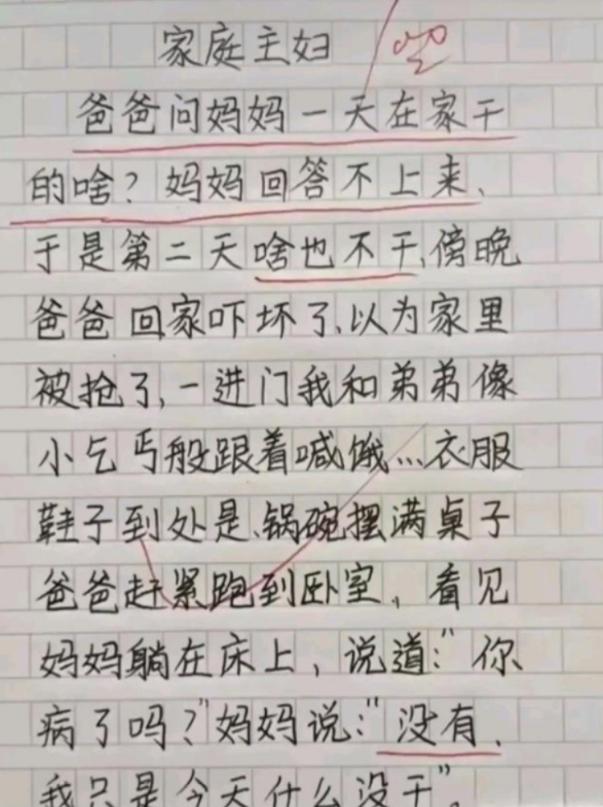 家庭主妇
爸爸问妈妈一天在家干
的啥？妈妈回答不上来、
于是第二天啥也不干、傍晚
爸爸回家吓坏了、以为家里
被抢了、一进门我和弟弟像
小乞丐般跟着喊饿…衣服
鞋子到处是、锅碗摆满桌子
爸爸赶紧跑到卧室，看见
妈妈躺在床上，说道："你
病了吗？"妈妈说："没有、
我只是今天什么没干"。